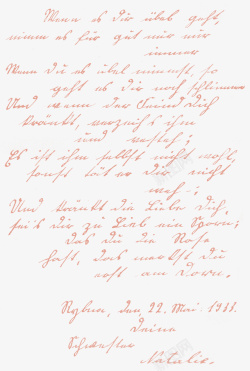 Wenn es dir übel geht,
nimm es für gut nur
immer
Wenn du es übel nimmst, so
geht es dir noch schlimmer
Und wenn der Freund dich
kränkt, verzeih's ihm
und versteh;
Es ist ihm selbst nicht wohl,
sonst tät er dir nicht
weh;
Und kränkt die Liebe dich,
sei's dir zur Lieb ein Sporn;
Daß du die Rose
hast, das merkst du
erst am Dorn.
den 22. Mai
Deine
Schwester
Natalie.